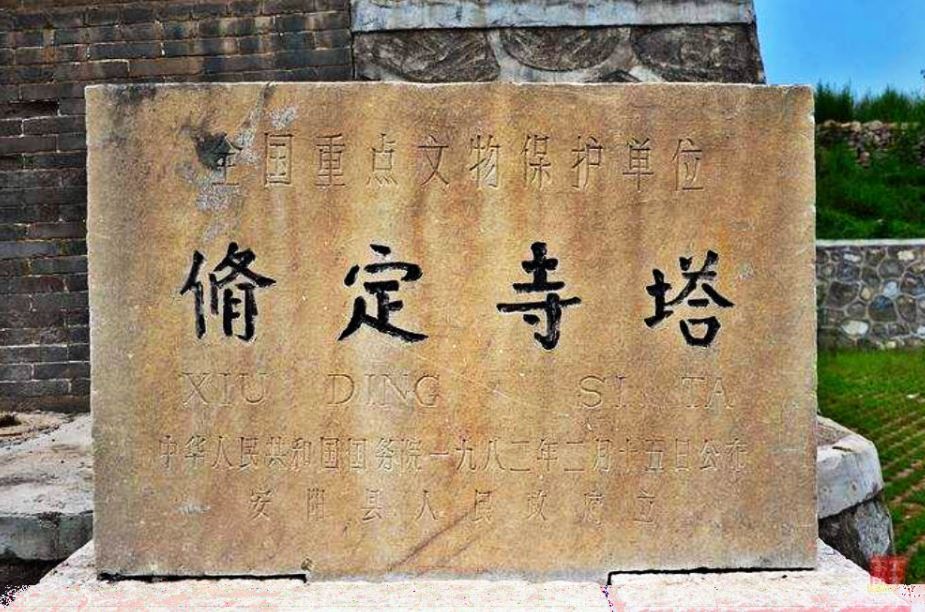 全国重点文物保护单位
脩定寺塔
XIU DING SI TA
中华人民共和国国务院一九八二年二月十五日公布
安阳县人民政府立